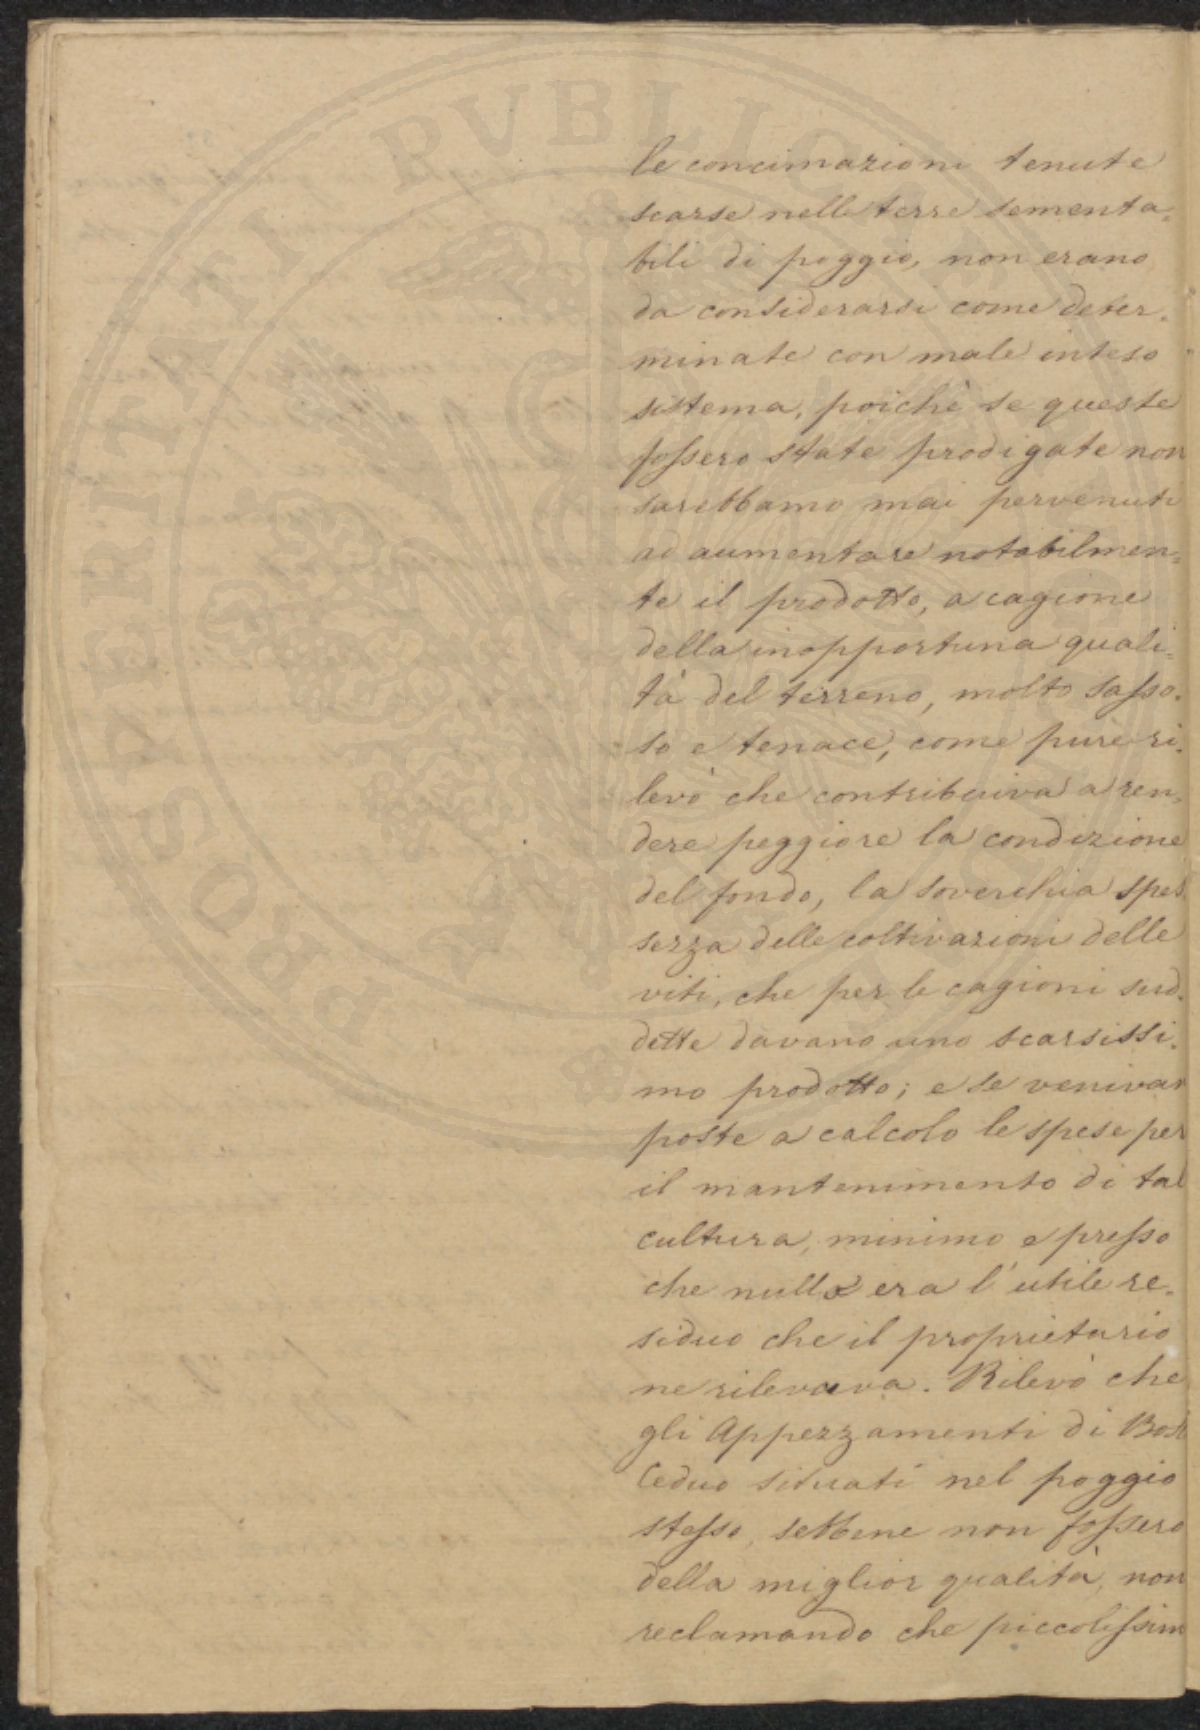 le concimazioni tenute
scarse nelle terre sementa=
bili di poggio, non erano
da considerarsi come deter=
minate con male inteso
sistema, poichè se queste
fossero state prodigate non
sarebbamo mai pervenuti
ad aumentare notabilmen=
te il prodotto, a cagione
della inopportuna quali=
tà del terreno, molto sasso=
so e tenace, come pure ri=
levò che contribuiva a ren=
dere peggiore la condizione
del fondo, la soverchia spes
sezza delle coltivazioni delle
viti, che per le cagioni sud=
dette davano uno scarsissi=
mo prodotto; e se venivan
poste a calcolo le spese per
il mantenimento di tal
cultura, minimo e presso
che nullo era l'utile re=
siduo che il proprietario
ne rilevava. Rilevò che
gli Appezzamenti di Bosc
Ceduo situati nel poggio
stesso, sebbene non fossero
della miglior qualità, non
reclamando che piccolissim
PROSPERITATI PVBLICAE